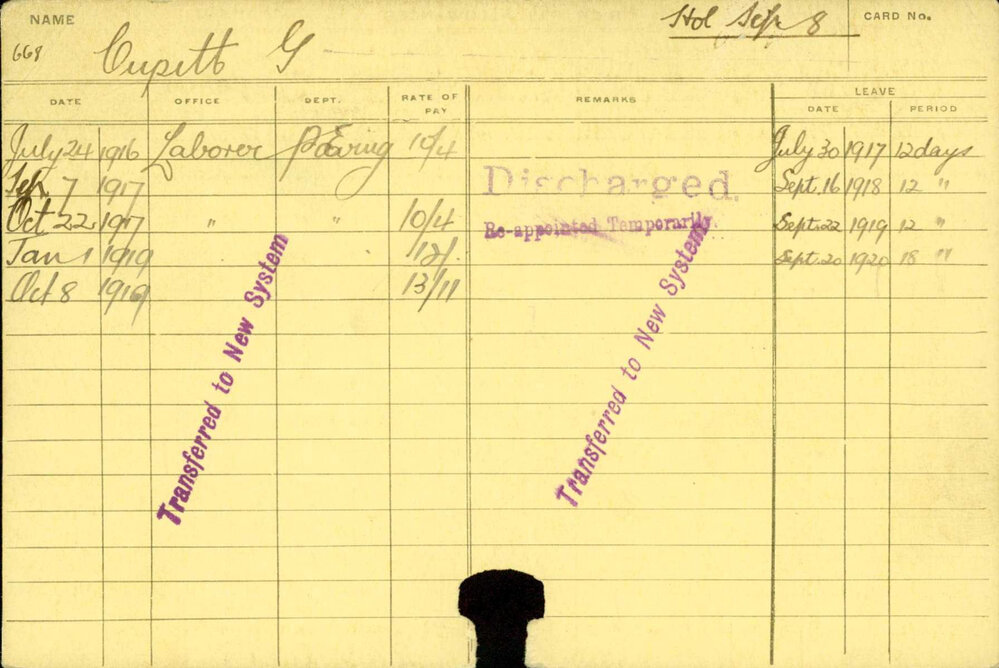 NAME
Hol Sep 8
CARD No.
668
Cupitt G
DATE OFFICE DEPT. RATE OF PAY REMARKS LEAVE
DATE PERIOD
July 24 1916 Laborer 10/4 July 30 1917 12 days
Sep. 7 1917 Discharged. Sept. 16 1918 12 "
Oct 22 1917 " " 10/4 Re-appointed Temporarily. Sept. 22 1919 12 "
Jan 1 1919 12/. Sept. 20 1920 18 "
Oct 8 1919 13/11
Transferred to New System
Transferred to New System